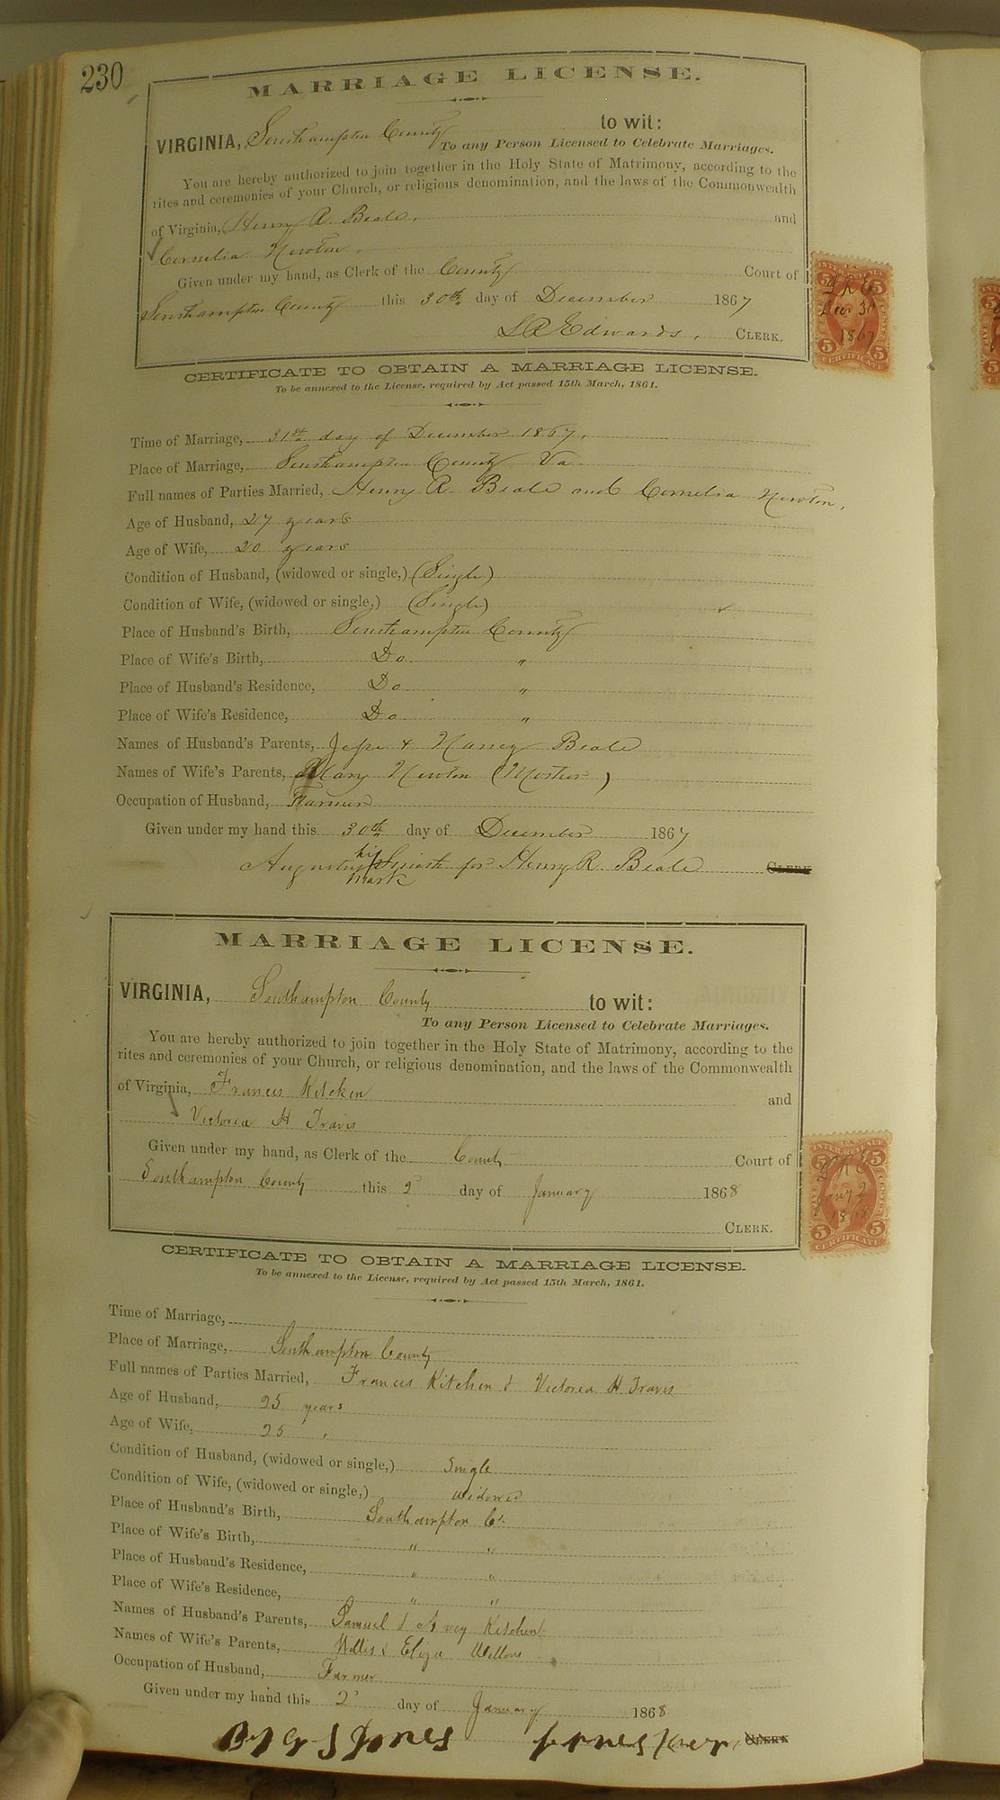 230
MARRIAGE LICENSE.
VIRGINIA, Southampton County to wit:
To any Person Licensed to Celebrate Marriages.
You are hereby authorized to join together in the Holy State of Matrimony, according to the
rites and ceremonies of your Church, or religious denomination, and the laws of the Commonwealth
of Virginia, Henry R. Beale, and
Cornelia Newton.
Given under my hand, as Clerk of the County Court of
Southampton County this 30th day of December 1867
L R Edwards, CLERK.
CERTIFICATE TO OBTAIN A MARRIAGE LICENSE.
To be annexed to the License, required by Act passed 15th March, 1861.
Time of Marriage, 31st day of December 1867,
Place of Marriage, Southampton County Va
Full names of Parties Married, Henry R. Beale and Cornelia Newton,
Age of Husband, 27 years
Age of Wife, 20 years
Condition of Husband, (widowed or single,) (Single)
Condition of Wife, (widowed or single,) (Single)
Place of Husband's Birth, Southampton County
Place of Wife's Birth, Do "
Place of Husband's Residence, Do "
Place of Wife's Residence, Do "
Names of Husband's Parents, Jesse & Nancy Beale
Names of Wife's Parents, Mary Newton (Mother)
Occupation of Husband, Farmer
Given under my hand this 30th day of December 1867
his
for Henry R. Beale CLERK
mark
MARRIAGE LICENSE.
VIRGINIA, Southampton County to wit:
To any Person Licensed to Celebrate Marriages.
You are hereby authorized to join together in the Holy State of Matrimony, according to the
rites and ceremonies of your Church, or religious denomination, and the laws of the Commonwealth
of Virginia, Francis Kitchen and
Victoria H Travis
Given under my hand, as Clerk of the County Court of
Southampton County this 2 day of January 1868
CLERK.
CERTIFICATE TO OBTAIN A MARRIAGE LICENSE.
To be annexed to the License, required by Act passed 15th March, 1861.
Time of Marriage,
Place of Marriage, Southampton County
Full names of Parties Married, Francis Kitchen & Victoria H Travis
Age of Husband, 25 years
Age of Wife, 25 "
Condition of Husband, (widowed or single,) Single
Condition of Wife, (widowed or single,) Widowed
Place of Husband's Birth, Southampton Co.
Place of Wife's Birth, " "
Place of Husband's Residence, " "
Place of Wife's Residence, " "
Names of Husband's Parents, Samuel & Kitchen
Names of Wife's Parents, Willis & Eliza
Occupation of Husband, Farmer
Given under my hand this 2 day of January 1868
Jones CLERK